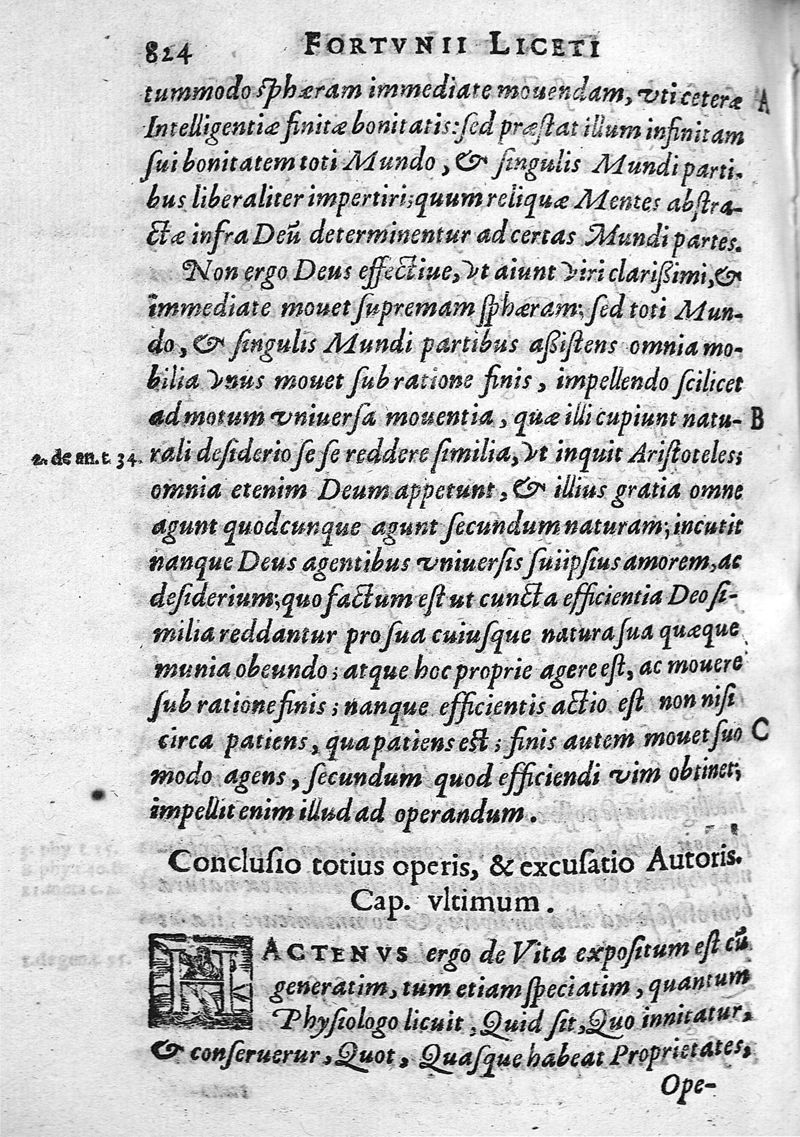 824 FORTVNII LICETI
tummodo sphæram immediate mouendam, vti ceteræ A
Intelligentiæ finitæ bonitatis: sed præstat illum infinitam
sui bonitatem toti Mundo, & singulis Mundi parti-
bus liberaliter impertiri; quum reliquæ Mentes abstra-
ctæ infra Deū determinentur ad certas Mundi partes.
Non ergo Deus effectiue, vt aiunt viri clarißimi, &
immediate mouet supremam sphæram; sed toti Mun-
do, & singulis Mundi partibus aßistens omnia mo-
bilia vnus mouet sub ratione finis, impellendo scilicet
ad motum vniuersa mouentia, quæ illi cupiunt natu- B
2. de an. t. 34. rali desiderio se se reddere similia, vt inquit Aristoteles;
omnia etenim Deum appetunt, & illius gratia omne
agunt quodcunque agunt secundum naturam; incutit
nanque Deus agentibus vniuersis suiipsius amorem, ac
desiderium; quo factum est ut cuncta efficientia Deo si-
milia reddantur pro sua cuiusque natura sua quæque
munia obeundo; atque hoc proprie agere est, ac mouere
sub ratione finis; nanque efficientis actio est non nisi
circa patiens, qua patiens est; finis autem mouet suo C
modo agens, secundum quod efficiendi vim obtinet;
impellit enim illud ad operandum.
Conclusio totius operis, & excusatio Autoris.
Cap. vltimum.
HACTENVS ergo de Vita expositum est cū
generatim, tum etiam speciatim, quantum
Physiologo licuit, Quid sit, Quo innitatur,
& conseruerur, Quot, Quasque habeat Proprietates,
Ope-